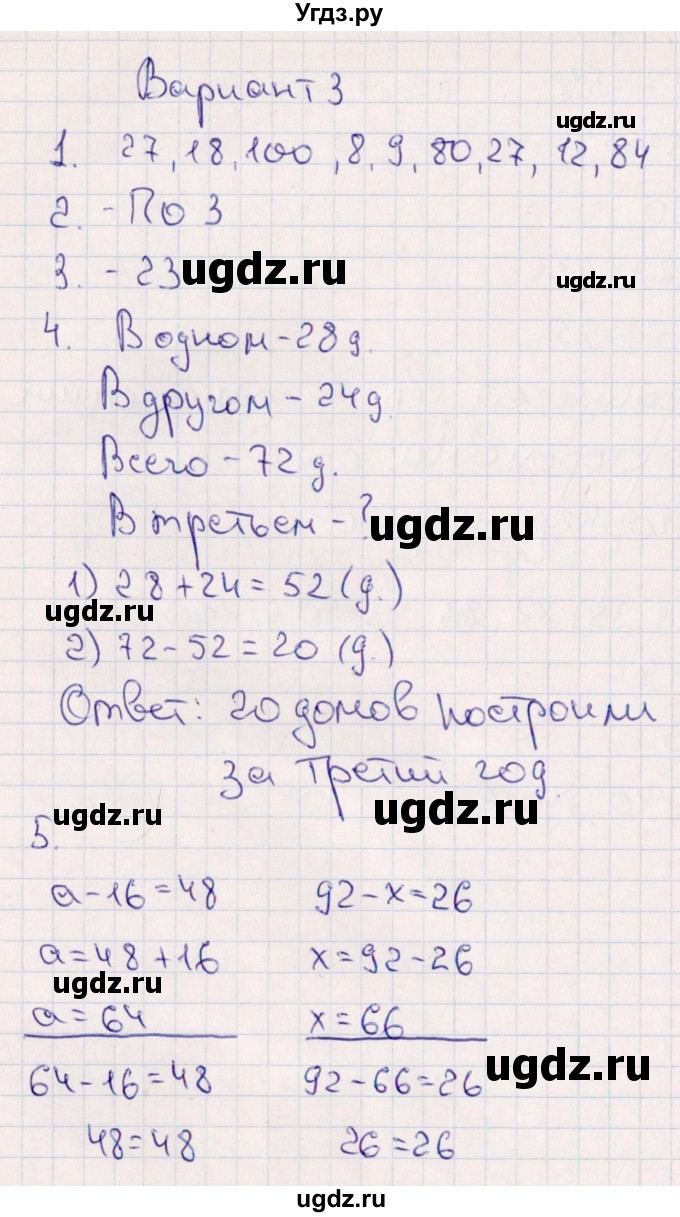 Угдз.ру
Вариант 3
ugdz.ru
1. 27, 18, 100, 8, 9, 80, 27, 12, 84
2. - По 3
3. - 23
ugdz.ru
ugdz.ru
4. В одном - 28 д.
В другом - 24 д.
Всего - 72 д.
В третьем - ?
ugdz.ru
1) 28 + 24 = 52 (д.)
ugdz.ru
2) 72 - 52 = 20 (д.)
Ответ: 20 домов построили
за третий год.
ugdz.ru
ugdz.ru
5.
а - 16 = 48 92 - х = 26
а = 48 + 16 х = 92 - 26
ugdz.ru
а = 64 х = 66
ugdz.ru
64 - 16 = 48 92 - 66 = 26
48 = 48 26 = 26
ugdz.ru